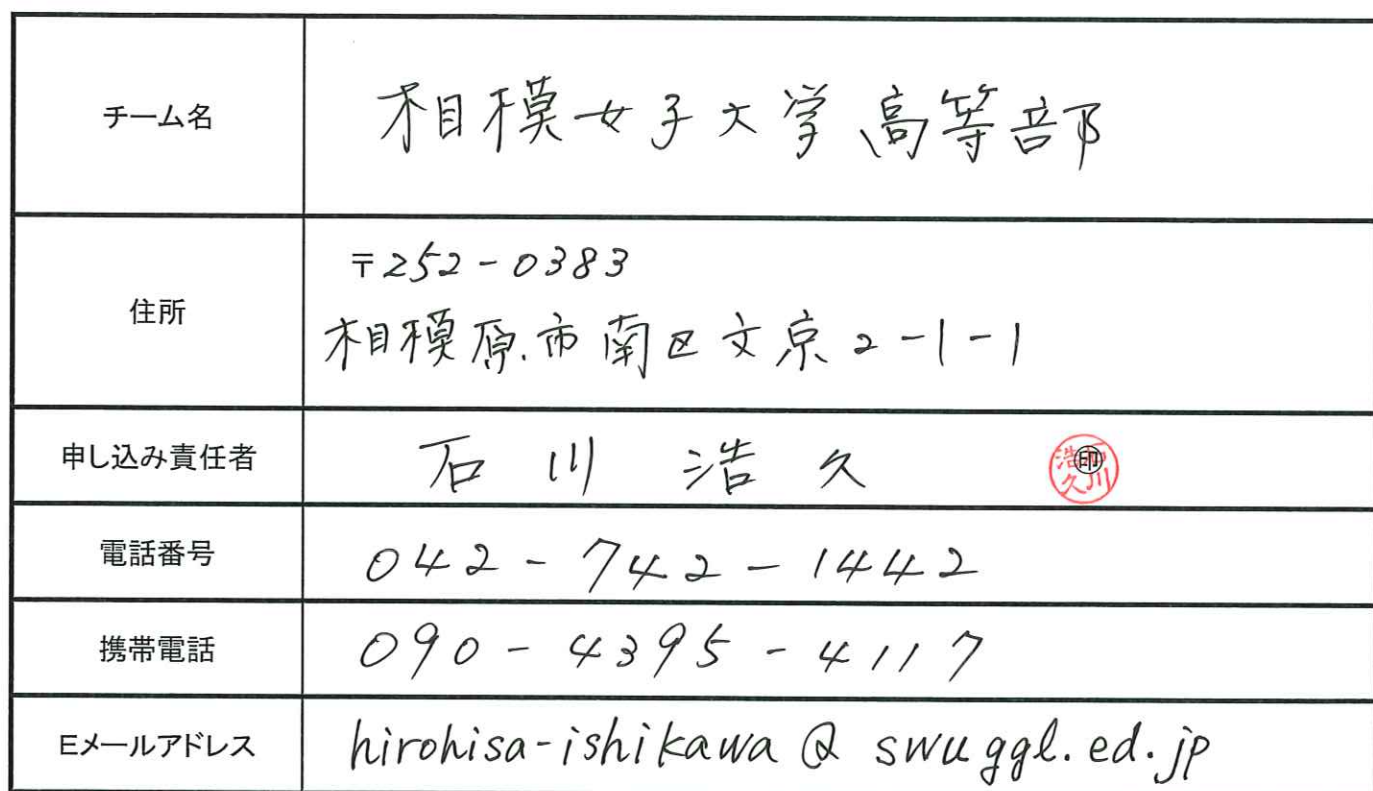 チーム名
相模女子大学高等部
住所
〒252-0383
相模原市南区文京2-1-1
申し込み責任者
石川 浩久
印
石川
浩久
電話番号
042-742-1442
携帯電話
090-4395-4117
Eメールアドレス
hirohisa-ishikawa@swuggl.ed.jp